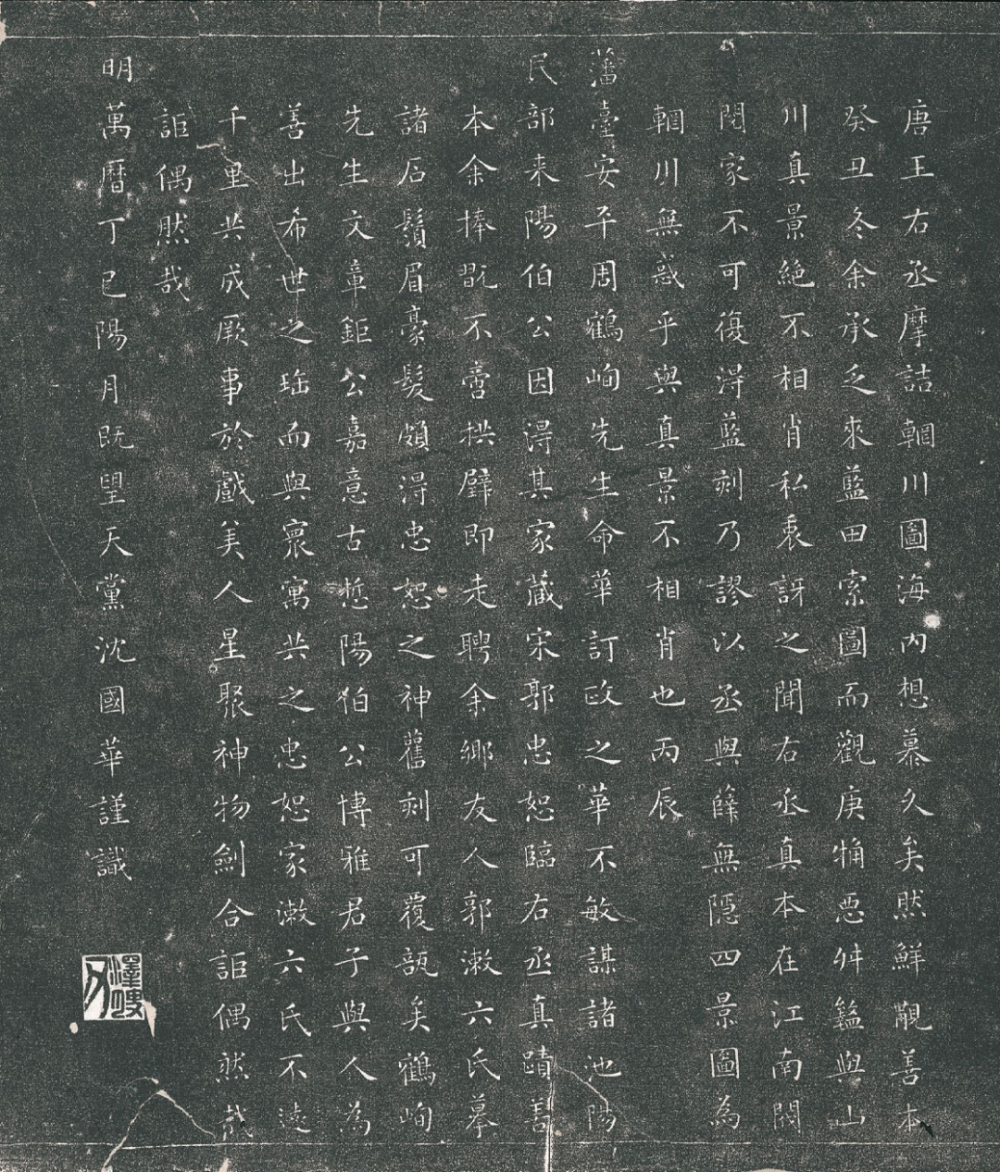 唐王右丞摩詰輞川圖海內想慕久矣然鮮覩善本
癸丑冬余承乏來藍田索圖而觀庚桷悪舛盭與山
川真景絶不相肖私衷訝之聞右丞真本在江南閥
閱家不可復淂藍刻乃謬以丞與薛無隱四景圖為
輞川無惑乎與真景不相肖也丙辰
藩臺安平周鶴峋先生命華訂政之華不敏謀諸池陽
民部来陽伯公因淂其家蔵宋郭忠恕臨右丞真蹟善
本余捧翫不啻拱璧即走聘余鄉友人郭漱六氏摹
諸石鬚眉豪髮頗淂忠恕之神舊刻可覆瓿矣鶴峋
先生文章鉅公嘉意古悊陽伯公博雅君子與人為
善出希世之珤而與寰寓共之忠恕家漱六氏不逺
千里共成厥事於戲美人星聚神物劍合詎偶然哉
詎偶然哉
明萬曆丁巳陽月既望天黨沈國華謹識